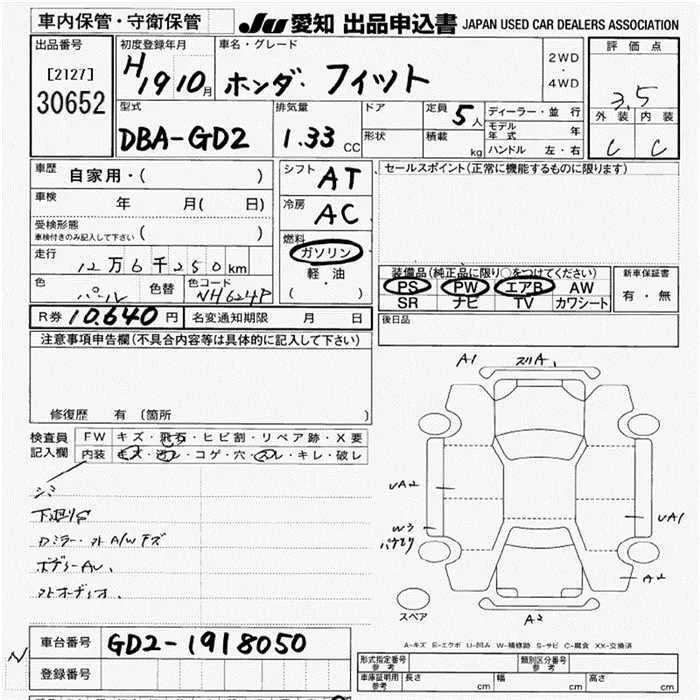 車内保管・守衛保管
JU 愛知 出品申込書 JAPAN USED CAR DEALERS ASSOCIATION
出品番号
[2127]
30652
初度登録年月
H19 10月
車名・グレード
ホンダ・フィット
2WD
・
4WD
評価点
3.5
外装 内装
C C
型式
DBA-GD2
排気量
1.33 CC
ドア
形状
定員 5人
積載 kg
ディーラー・並行
モデル年式 年
ハンドル 左・右
車歴 自家用・( )
車検 年 月( 日)
受検形態
車検付きのみ記入して下さい ( )
走行 12万6千250km
色 パール 色替 色コード NH624P
シフト AT
冷房 AC
燃料
ガソリン
軽・油
( )
セールスポイント(正常に機能するものに限ります)
装備品(純正品に限り○をつけてください)
PS PW エアB AW
SR ナビ TV カワシート
新車保証書
有・無
R券 10.640円 名変通知期限 月 日
後日品
注意事項申告欄(不具合内容等は具体的に記入して下さい)
修復歴 有 (箇所 )
検査員
記入欄
FW キズ・飛石・ヒビ割・リペア跡・X要
内装 キズ・汚レ・コゲ・穴・スレ・キレ・破レ
シミ
ボデーAU、
A1
UA2
W3
UA1
A2
A2
スペア
A-キズ E-エクボ U-凹み W-補修跡 S-サビ C-腐食 XX-交換済
N
車台番号 GD2-1918050
登録番号
型式指定番号 参考
類別区分番号 参考
車庫証明用 参考 長さ cm 幅 cm 高さ cm